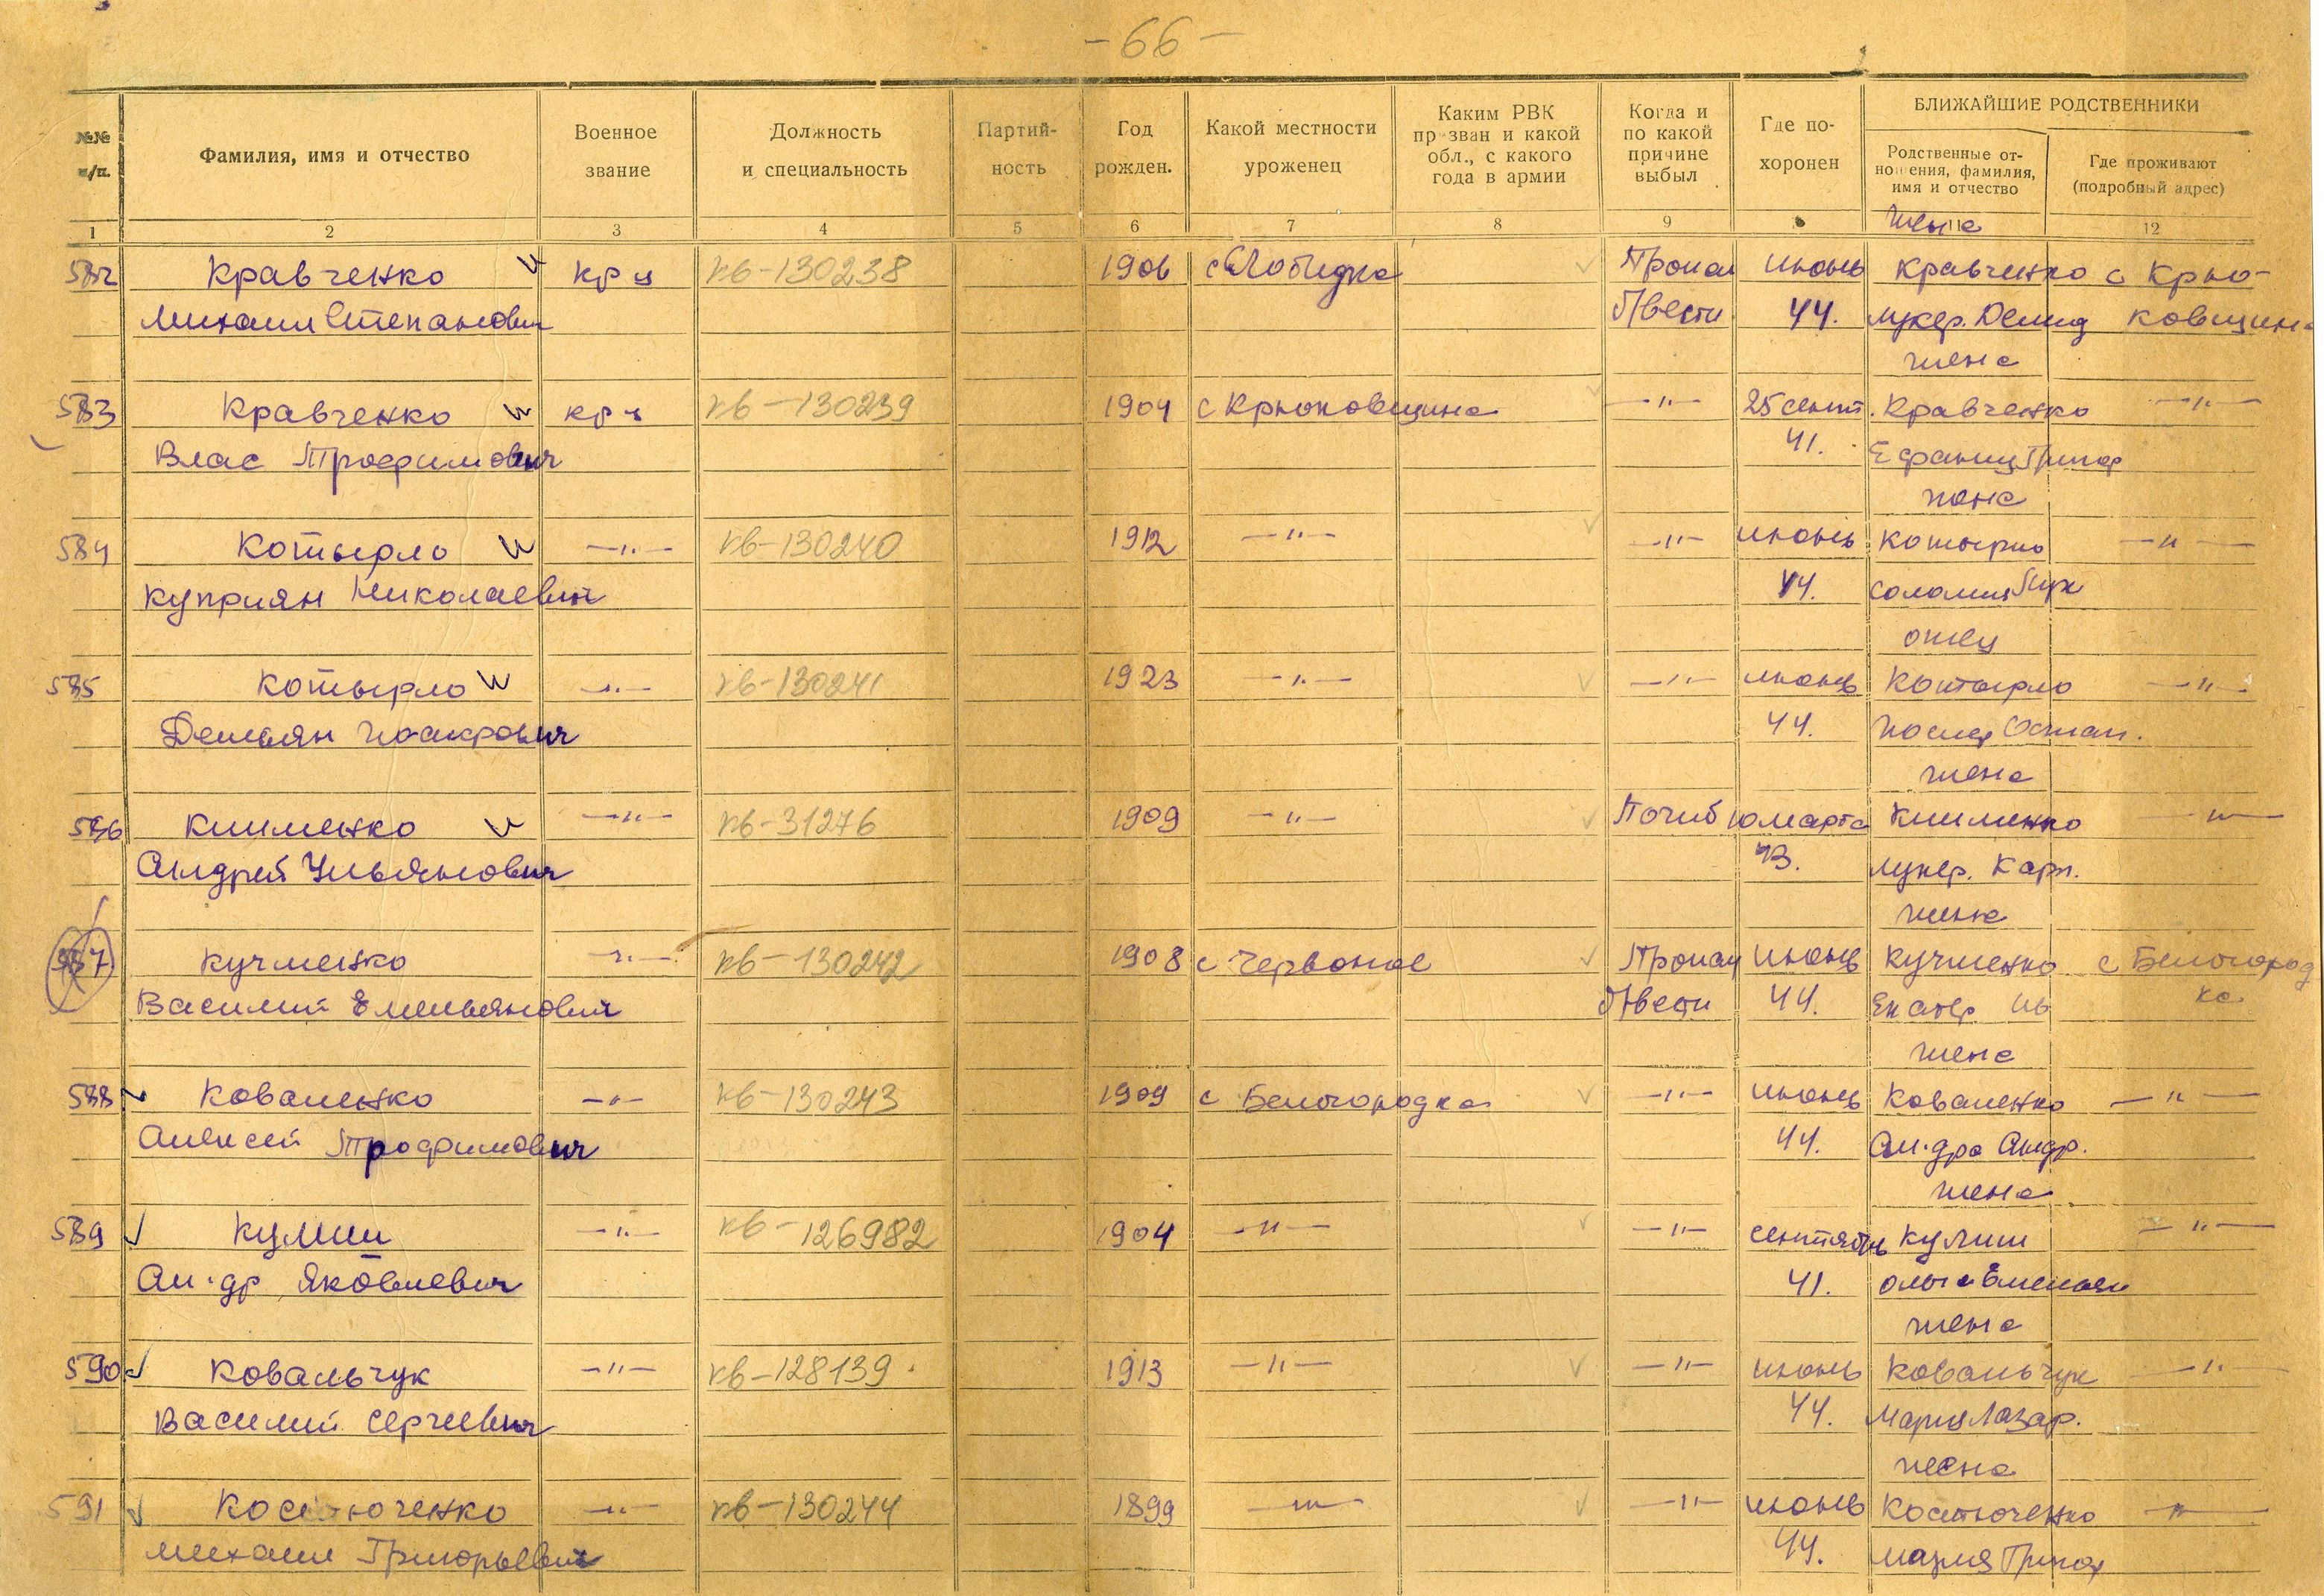 - 66 -
№№ п/п.
Фамилия, имя и отчество
Военное звание
Должность и специальность
Партий-ность
Год рожден.
Какой местности уроженец
Каким РВК призван и какой обл., с какого года в армии
Когда и по какой причине выбыл
Где по-хоронен
БЛИЖАЙШИЕ РОДСТВЕННИКИ
Родственные от-ношения, фамилия, имя и отчество
Где проживают (подробный адрес)
1 2 3 4 5 6 7 8 9 12
жена
582 Кравченко кр-ц кв-130238 1906 с Слободка Пропал июнь Кравченко с Крю-
Михаил Степанович б/вести 44. Лукер. Демид ковщина
жена
583 Кравченко кр-ц кв-130239 1904 с Крюковщина —"— 25 сент. Кравченко —"—
Влас Трофимович 41. Григор
жена
584 Котырло —"— кв-130240 1912 —"— —"— июнь Котырло —"—
Куприян Николаевич 44. Соломия
отец
585 Котырло —"— кв-130241 1923 —"— —"— июнь Котырло —"—
Демьян 44. Остап.
жена
586 Клименко —"— кв-31276 1909 —"— Погиб 10 марта Клименко —"—
Андрей Ульянович 43. Лукер. Карп.
жена
587 Кучменко —"— кв-130242 1908 с Червоное Пропал июнь Кучменко с Белогород
Василий Емельянович б/вести 44. Екатер. Ив ка
жена
588 Коваленко —"— кв-130243 1909 с Белогородка —"— июнь Коваленко —"—
Алексей Трофимович 44. Ал-дра Андр.
жена
589 Кулиш —"— кв-126982 1904 —"— —"— сентябрь Кулиш —"—
Ал-др Яковлевич 41. Ольга Емельян
жена
590 Ковальчук —"— кв-128139 1913 —"— —"— июнь Ковальчук —"—
Василий Сергеевич 44. Мария Лазар.
жена
591 Костюченко —"— кв-130244 1899 —"— —"— июнь Костюченко —"—
Михаил Григорьевич 44. Мария Григор